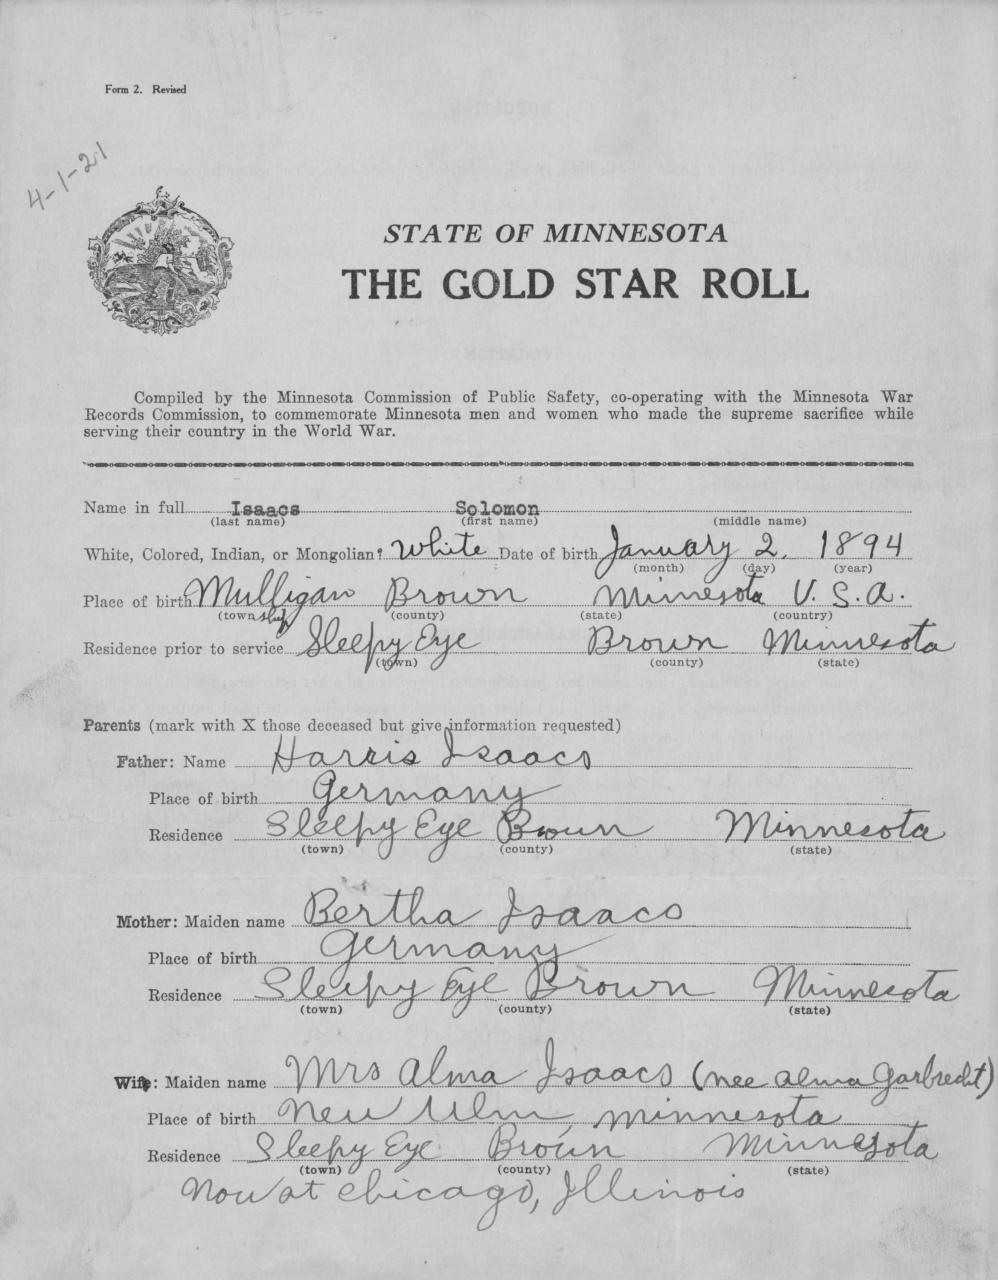 Form 2. Revised
4-1-21
STATE OF MINNESOTA
THE GOLD STAR ROLL
Compiled by the Minnesota Commission of Public Safety, co-operating with the Minnesota War
Records Commission, to commemorate Minnesota men and women who made the supreme sacrifice while
serving their country in the World War.
Name in full Isaacs Solomon
(last name) (first name) (middle name)
White, Colored, Indian, or Mongolian? White Date of birth January 2, 1894
(month) (day) (year)
Place of birth Mulligan Brown Minnesota U.S.A.
(town ship (county) (state) (country)
Residence prior to service Sleepy Eye Brown Minnesota
(town) (county) (state)
Parents (mark with X those deceased but give information requested)
Father: Name Harris Isaacs
Place of birth Germany
Residence Sleepy Eye Brown Minnesota
(town) (county) (state)
Mother: Maiden name Bertha Isaacs
Place of birth Germany
Residence Sleepy Eye Brown Minnesota
(town) (county) (state)
Wife: Maiden name Mrs Alma Isaacs (nee Alma Garbrecht)
Place of birth New Ulm, Minnesota
Residence Sleepy Eye Brown Minnesota
(town) (county) (state)
Now at Chicago, Illinois